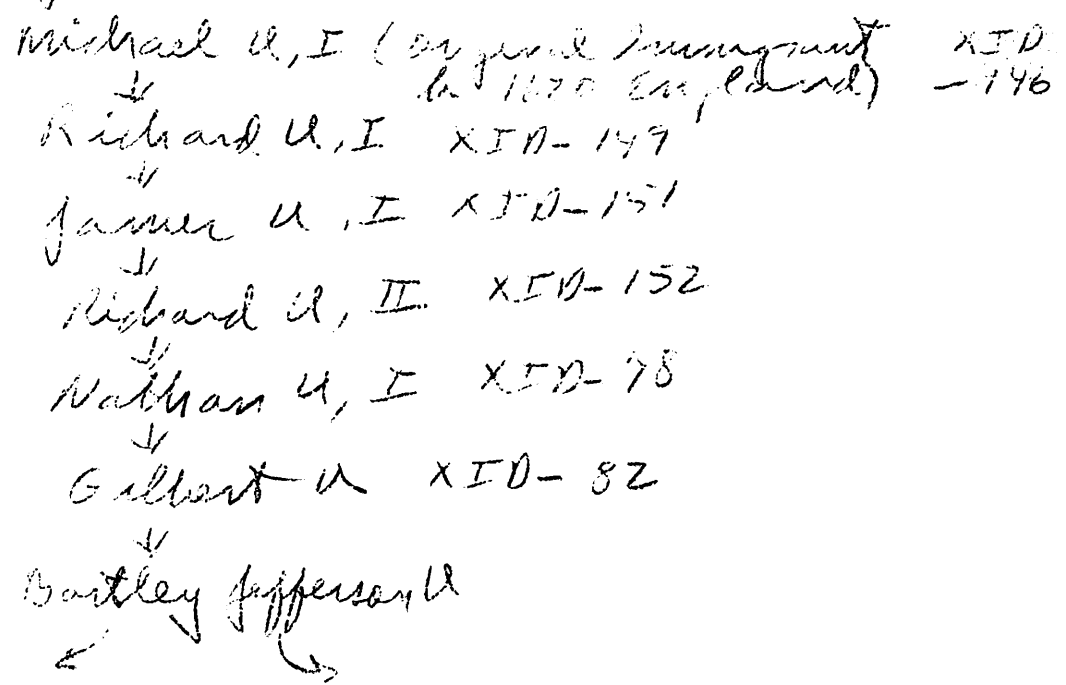 Michael U, I (Original Immigrant XID
in 1670 England) - 146
Richard U, I XID- 149
James U, I XID-151
Richard U, II XID- 152
Nathan U, I XID- 78
Gilbert U XID- 82
Bartley Jefferson U